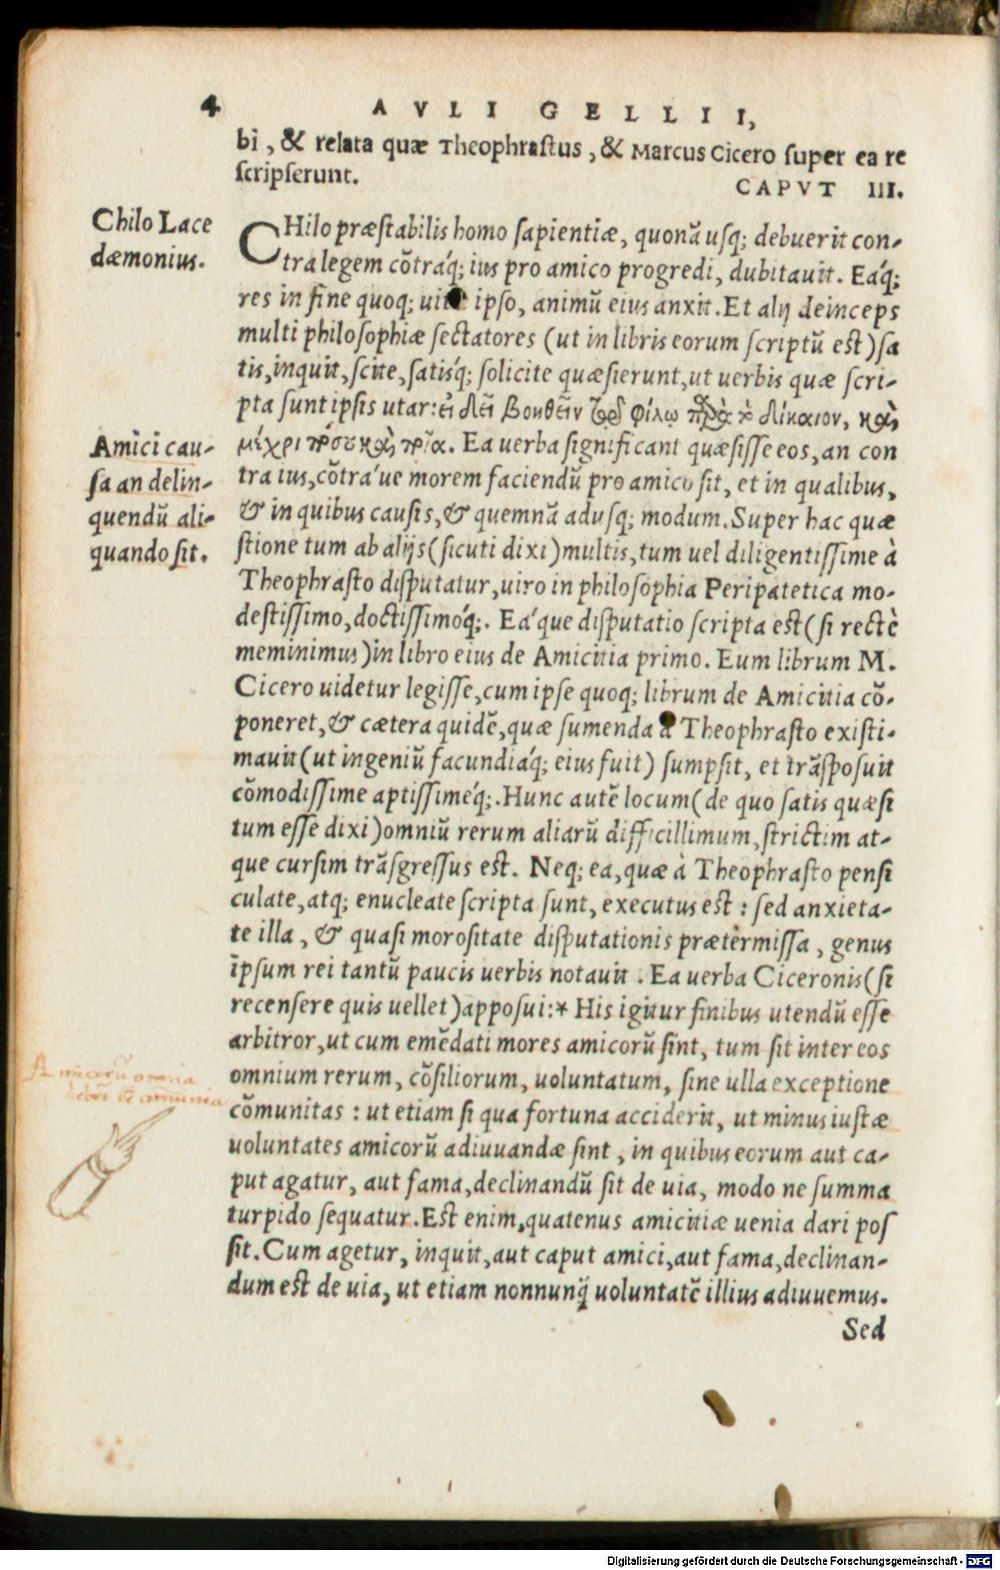 4 AVLI GELLII,
bi, & relata quæ Theophrastus, & Marcus Cicero super ea re
scripserunt. CAPVT III.
Chilo Lace
dæmonius.
CHilo præstabilis homo sapientiæ, quonā usq; debuerit con-
tra legem cōtráq; ius pro amico progredi, dubitauit. Eáq;
res in fine quoq; uitæ ipso, animū eius anxit. Et alij deinceps
multi philosophiæ sectatores (ut in libris eorum scriptū est) sa
tis, inquit, scite, satisq́; solicite quæsierunt, ut uerbis quæ scri-
pta sunt ipsis utar: εἰ δεῖ βοηθεῖν τῷ φίλῳ παρὰ τὸ δίκαιον, καὶ
Amici cau-
sa an delin-
quendū ali-
quando sit.
μέχρι πόσου καὶ ποῖα. Ea uerba significant quæsisse eos, an con
tra ius, cōtra´ue morem faciendū pro amico sit, et in qualibus,
& in quibus causis, & quemnā adusq; modum. Super hac quæ
stione tum ab alijs (sicuti dixi) multis, tum uel diligentissime à
Theophrasto disputatur, uiro in philosophia Peripatetica mo-
destissimo, doctissimóq;. Ea´que disputatio scripta est (si rectè
meminimus) in libro eius de Amicitia primo. Eum librum M.
Cicero uidetur legisse, cum ipse quoq; librum de Amicitia cō-
poneret, & cætera quidē, quæ sumenda à Theophrasto existi-
mauit (ut ingeniū facundiáq; eius fuit) sumpsit, et trāsposuit
cōmodissime aptissiméq;. Hunc autē locum (de quo satis quæsi
tum esse dixi) omniū rerum aliarū difficillimum, strictim at-
que cursim trāsgressus est. Neq; ea, quæ à Theophrasto pensi
culate, atq; enucleate scripta sunt, executus est: sed anxieta-
te illa, & quasi morositate disputationis prætermissa, genus
ipsum rei tantū paucis uerbis notauit. Ea uerba Ciceronis (si
recensere quis uellet) apposui:* His igitur finibus utendū esse
arbitror, ut cum emēdati mores amicorū sint, tum sit inter eos
Amicorū omnia
omnium rerum, cōsiliorum, uoluntatum, sine ulla exceptione
cōmunitas: ut etiam si qua fortuna acciderit, ut minus iustæ
uoluntates amicorū adiuuandæ sint, in quibus eorum aut ca-
put agatur, aut fama, declinandū sit de uia, modo ne summa
turpido sequatur. Est enim, quatenus amicitiæ uenia dari pos
sit. Cum agetur, inquit, aut caput amici, aut fama, declinan-
dum est de uia, ut etiam nonnunq̃ uoluntatē illius adiuuemus.
Sed
Digitalisierung gefördert durch die Deutsche Forschungsgemeinschaft - DFG